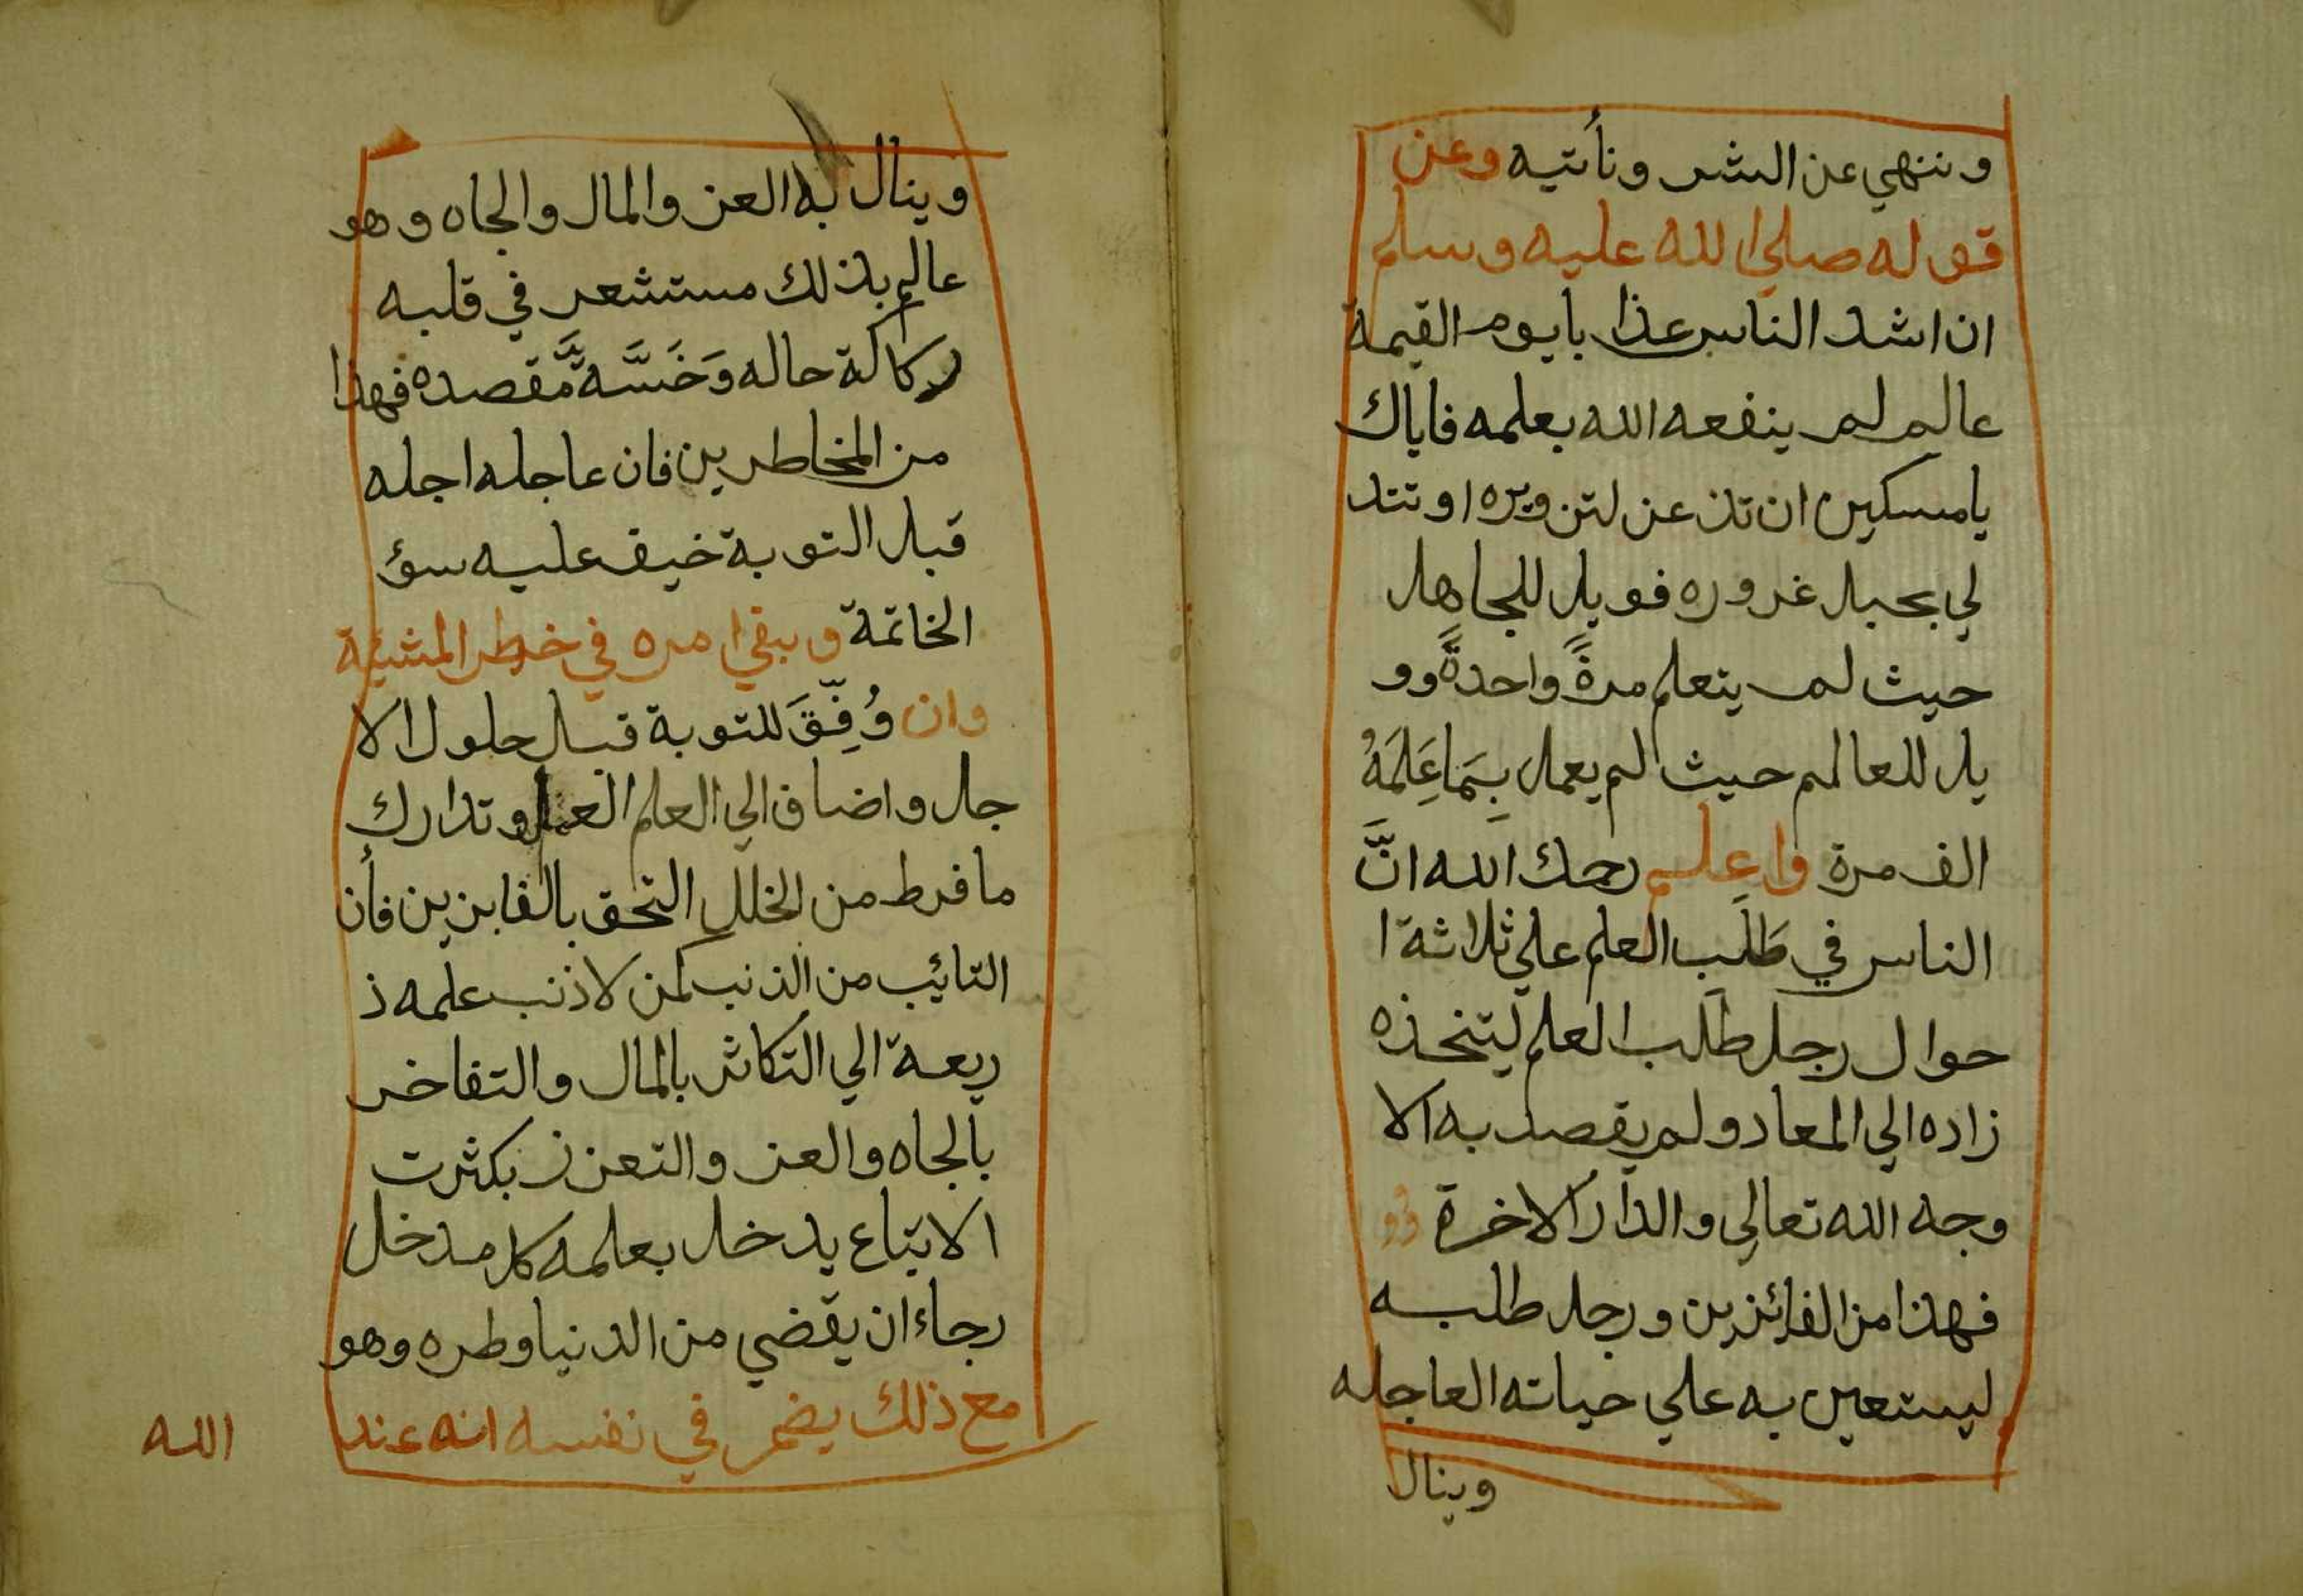 وننهي عن الشر ونأتيه وعن
قوله صلي الله عليه وسلم
ان اشد الناس عذابا يوم القيمة
عالم لم ينفعه الله بعلمه فاياك
يا مسكين ان تذعن لتزويره او تتد
لي بحبل غروره فويل للجاهل
حيث لم يتعلم مرةً واحدةً وو
يل للعالم حيث لم يعمل بِمَا عَلِمَهُ
الف مرة واعلم رحمك الله انَّ
الناس في طَلَبِ العلم علي ثلاثة ا
حوال رجل طَلَب العلم ليتخذه
زاده الي المعاد ولم يقصد به الا
وجه الله تعالي والدار الاخرة
فهذا من الفائزين ورجل طلبه
ليستعين به علي حياته العاجله
وينال
وينال به العز والمال والجاه وهو
عالم بذلك مستشعر في قلبه
ركاكة حاله وَخَسَّةَ مَّقصده فهذا
من المخاطرين فان عاجله اجله
قبل التوبة خيف عليه سؤ
الخاتمة وبقي امره في خطر المشيئة
وان وُفِّقَ للتوبة قبل حلول الا
جل واضاف الي العلم العمل وتدارك
ما فرط من الخلل التحق بالفايزين فأن
التائيب من الذنب كمن لا ذنب علمه ذ
ريعة الي التكاثر بالمال والتفاخر
بالجاه والعز والتعزز بكثرت
الاتباع يدخل بعلمه كل مدخل
رجاء ان يقضي من الدنيا وطره وهو
مع ذلك يضمر في نفسه انه عند
الله